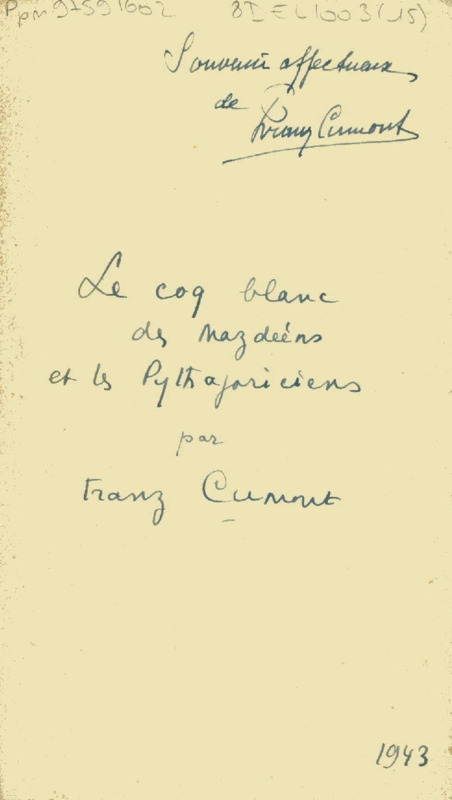 Ppn 97591602 BIEL1003(15)
Souvenir affectueux
de
Franz Cumont
Le coq blanc
des Mazdéens
et les Pythagoriciens
par
Franz Cumont
1943